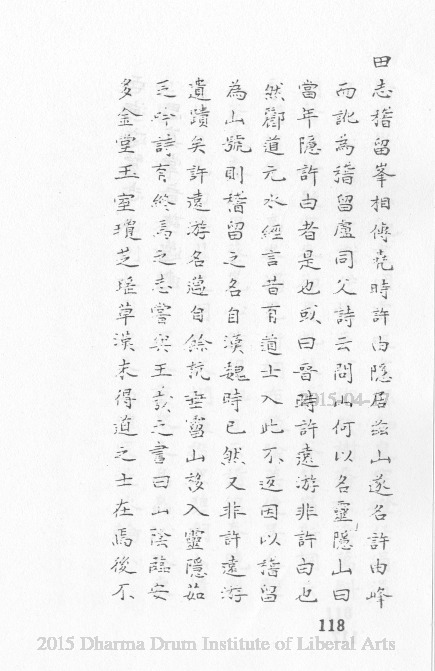 田志稽留峯相傳堯時許由隱居茲山遂名許由峰
而訛為稽留盧同父詩云問山何以名靈隱山曰
當年隱許由者是也或曰晉時許遠游非許由也
然酈道元水經言昔有道士入此不返因以稽留
為山號則稽留之名自漢魏時已然又非許遠游
遺蹟矣許遠游名邁自餘杭垂霤山移入靈隱茹
芝吟詩有終焉之志嘗與王羲之書曰山陰臨安
多金堂玉室瓊芝瑤草漢末得道之士在焉後不
118
2015 Dharma Drum Institute of Liberal Arts